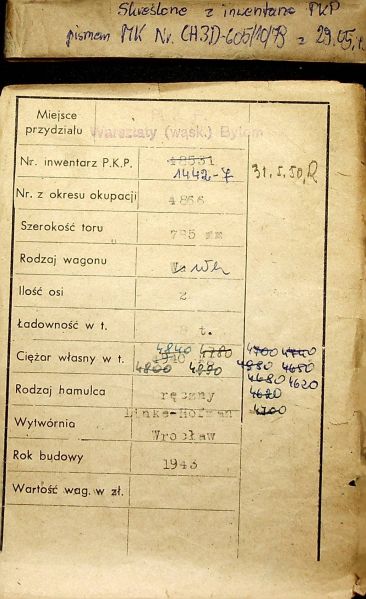 Skreślono z inwentarza PKP
pismem MK Nr. CH3D-605/10/73 z 29.05.
Miejsce
przydziału Warsztaty (wąsk.) Bytom
Nr. inwentarz P.K.P. 18531
1442-7 31.5.50.
Nr. z okresu okupacji 4866
Szerokość toru 785 mm
Rodzaj wagonu
Ilość osi 2
Ładowność w t. t.
4840 4780 4700
Ciężar własny w t.
4800 4650
4680 4620
Rodzaj hamulca ręczny 4620
Linke-Hofman 4700
Wytwórnia
Wrocław
Rok budowy 1943
Wartość wag. w zł.